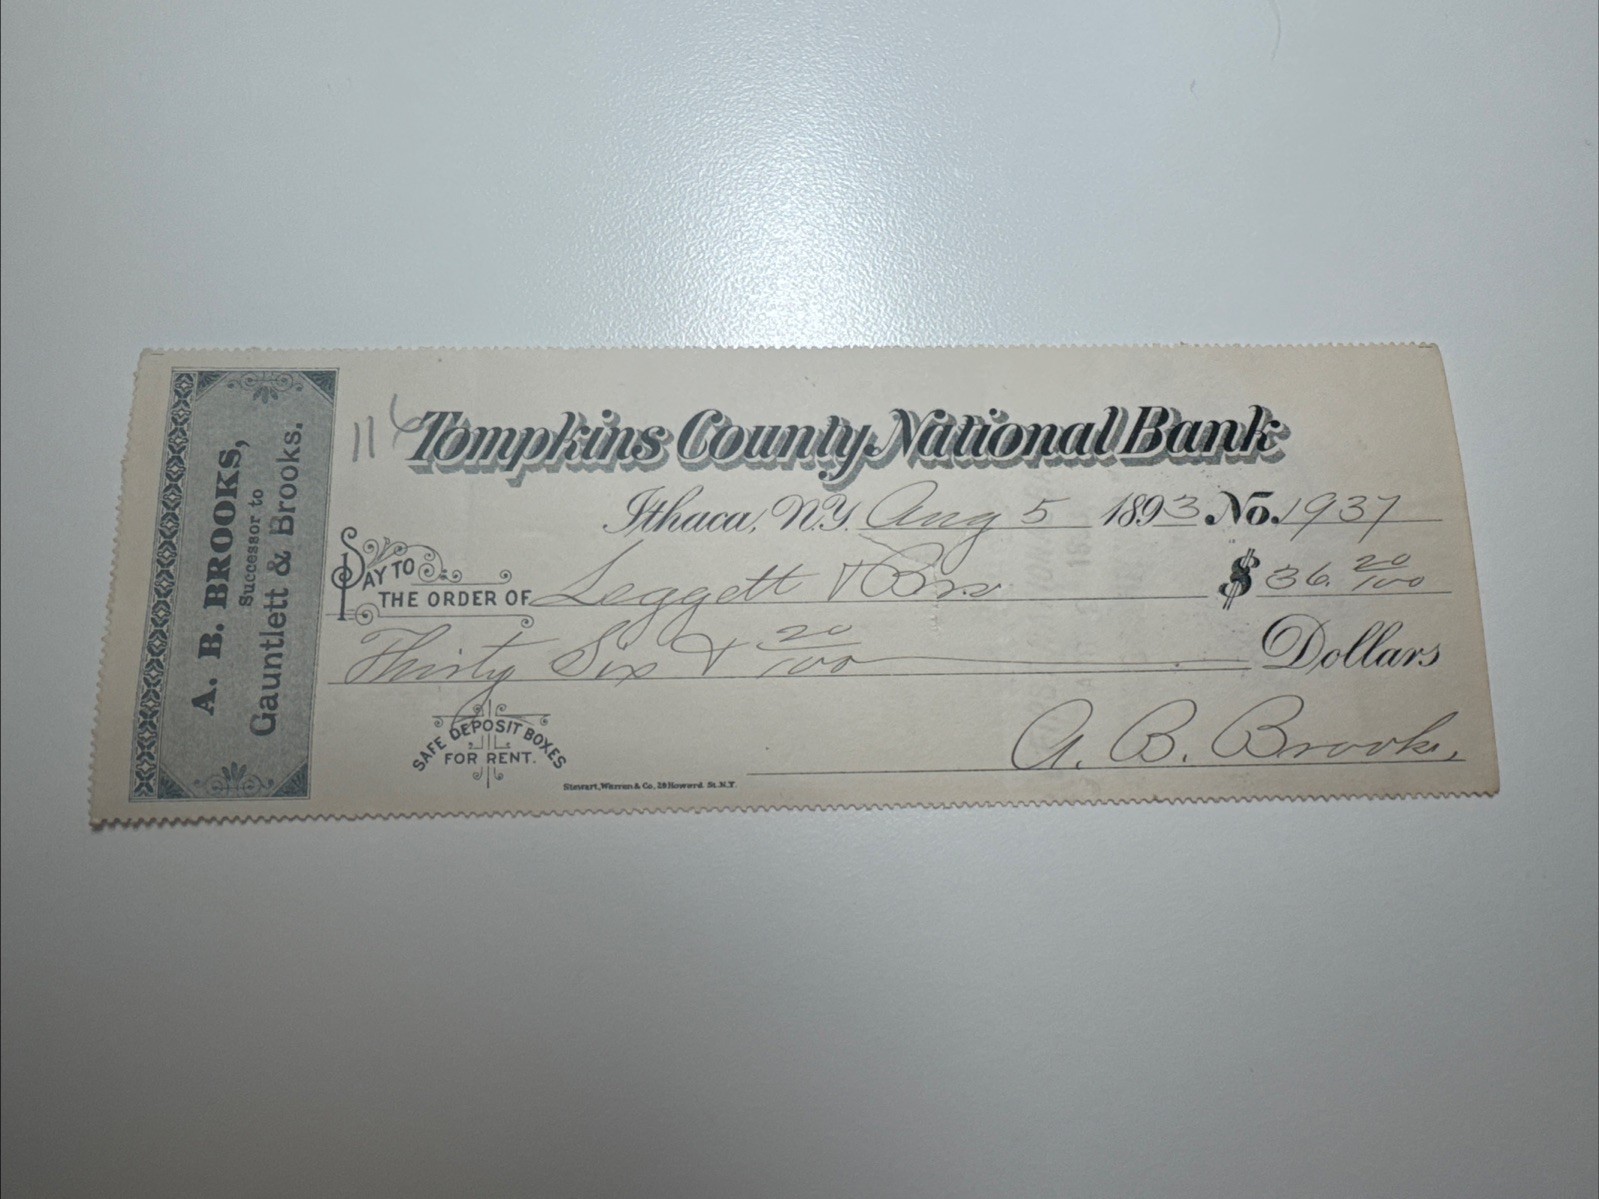 A. B. BROOKS,
Successor to
Gauntlett & Brooks.
116
Tompkins County National Bank
Ithaca, N.Y. Aug 5 1893 No. 1937
PAY TO
THE ORDER OF Leggett & Bro $ 36. 20/100
Thirty Six & 20/100 Dollars
SAFE DEPOSIT BOXES
FOR RENT.
A. B. Brooks,
Stewart, Warren & Co, 29 Howard St. N.Y.